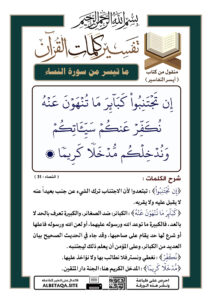 بسم الله الرحمن الرحيم
تفسير كلمات القرآن
ما تيسر من سورة النساء
منقول من كتاب
( أيسر التفاسير )
إِن تَجْتَنِبُوا۟ كَبَآئِرَ مَا تُنْهَوْنَ عَنْهُ
نُكَفِّرْ عَنكُمْ سَيِّـَٔاتِكُمْ
وَنُدْخِلْكُم مُّدْخَلًا كَرِيمًا
( النساء : 31 )
شرح الكلمات :
﴿إن تجتنبوا﴾ : تبتعدوا لأن الاجتناب ترك الشيء عن جنب بعيداً عنه
لا يقبل عليه ولا يقربه.
﴿كبائر ما تنهون عنه﴾ : الكبائر: ضد الصغائر، والكبيرة تعرف بالحد لا
بالعد، فالكبيرة ما توعد الله ورسوله عليها، أو لعن الله ورسوله فاعلها
أو شرع لها حد يقام على صاحبها، وقد جاء في الحديث الصحيح بيان
العديد من الكبائر، وعلى المؤمن أن يعلم ذلك ليجتنبه.
﴿نكفر﴾ : نغطي ونستر فلا نطالب بها ولا نؤاخذ عليها.
﴿مدخلا كريما﴾ : المدخل الكريم هنا: الجنة دار المتقين.
ALBETAQA.SITE